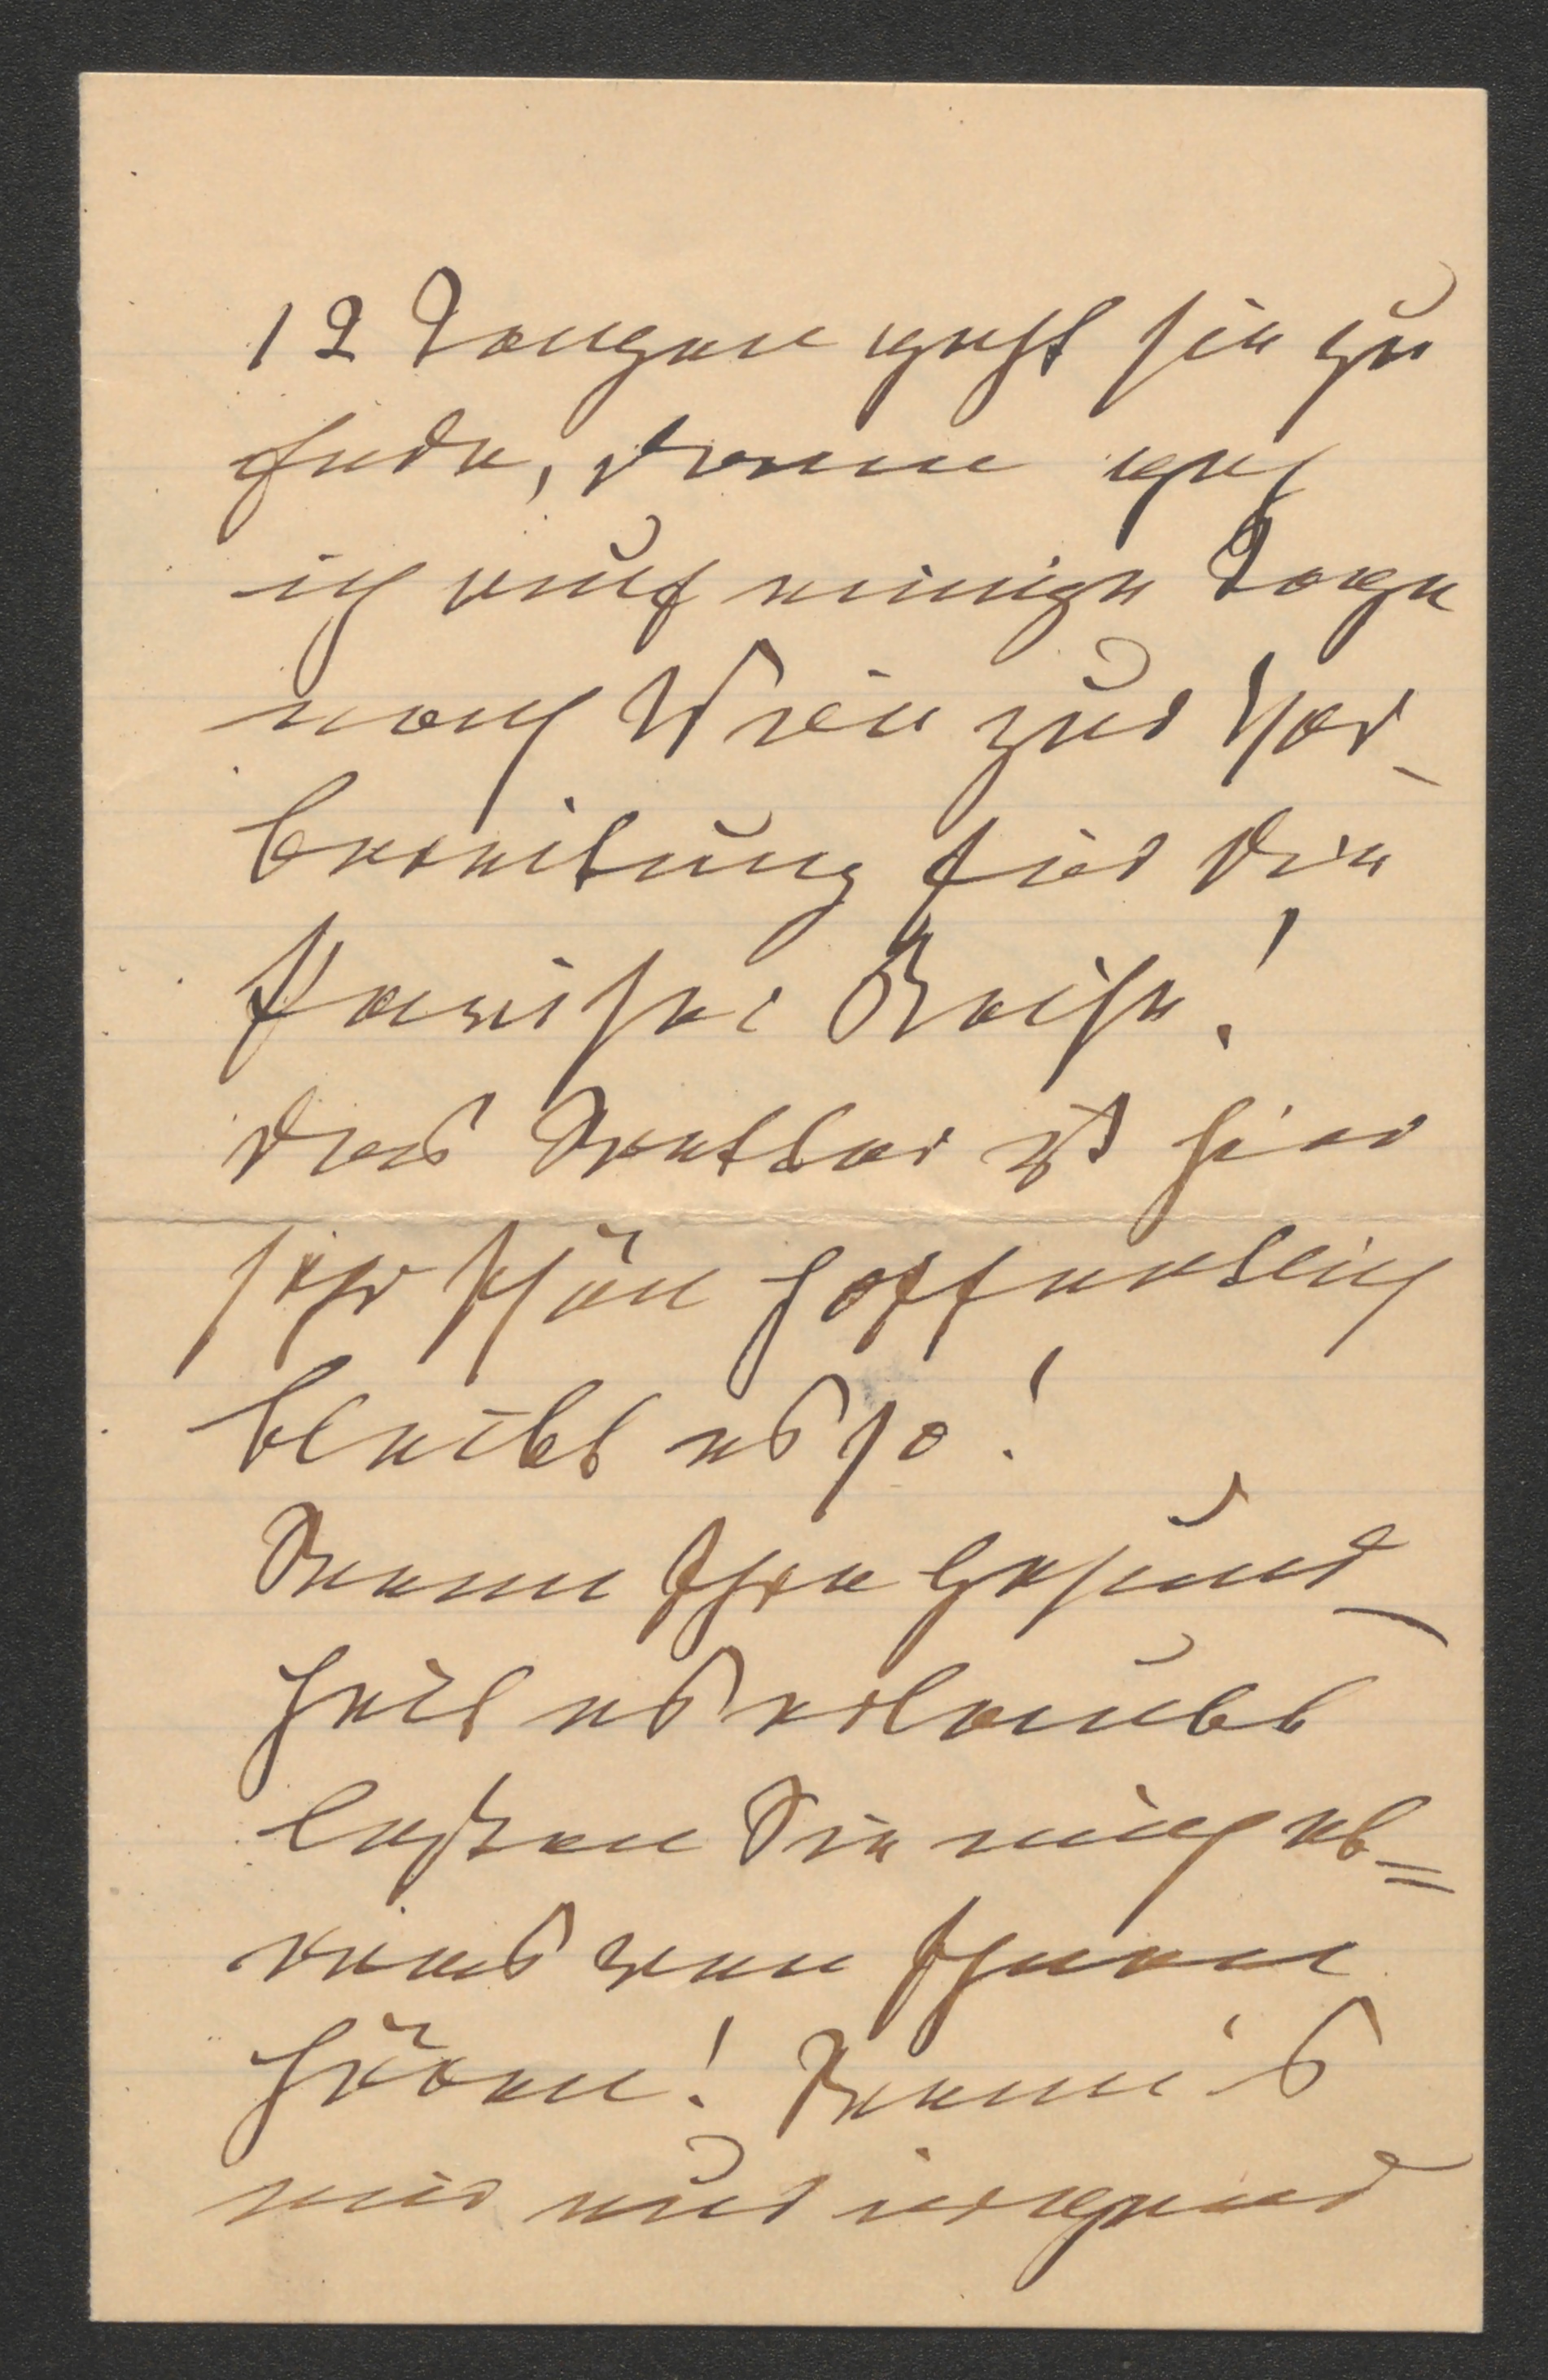 12 Tougen geht sie zu
Ende, dann geh
ich auf einige Tage
nach Wien zur Vor-
bereitung für die
Pariser Reise!
das Wetter ist hier
sehr schön hoffentlich
bleibt es so!
Wenn Ihre Gesund-
heit es erlaubt
laßen Sie mich et=
was von Ihnen
hören! Wenn's
mir nur irgend